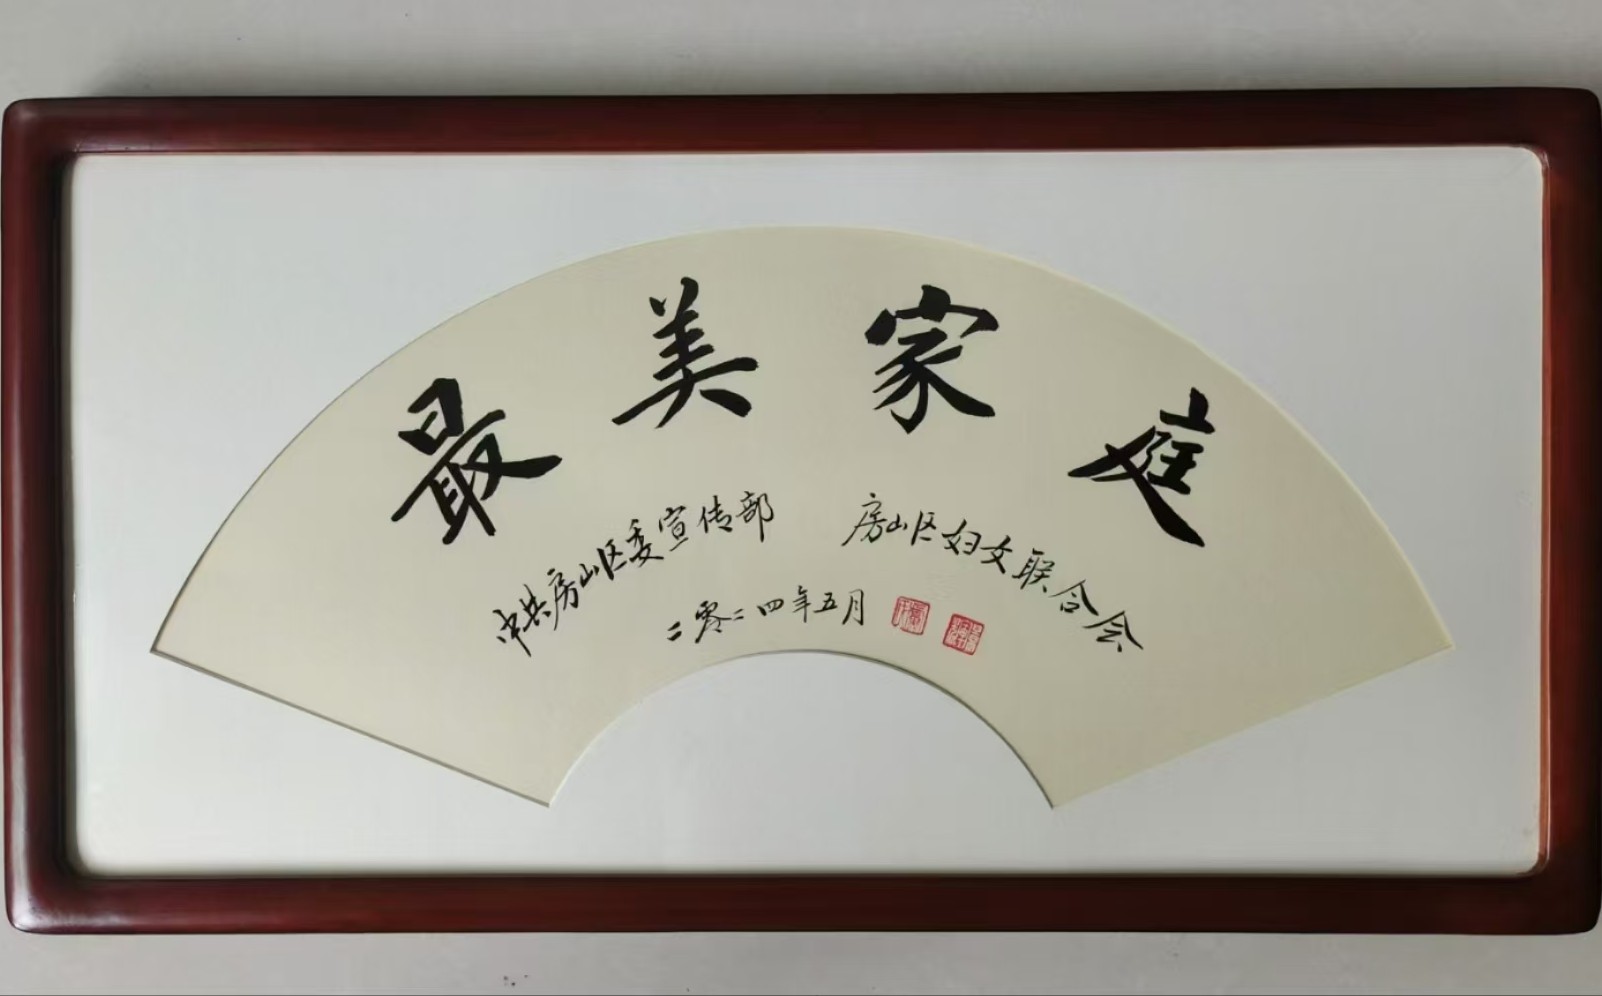 最美家庭
中共房山区委宣传部 房山区妇女联合会
二零二四年五月